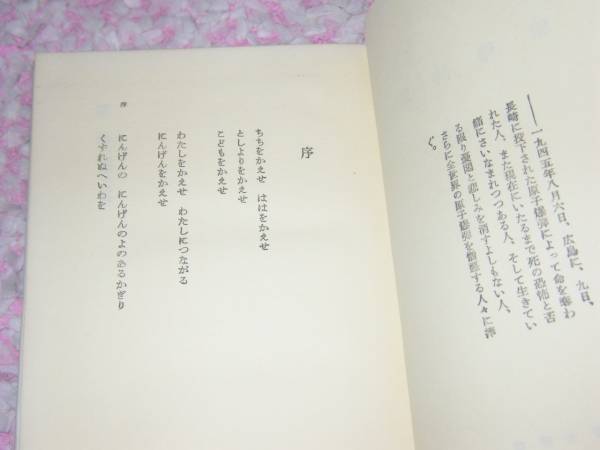 ――一九四五年八月六日、広島に、九日、
長崎に投下された原子爆弾によって命を奪わ
れた人、また現在にいたるまで死の恐怖と苦
痛にさいなまれつつある人、そして生きてい
る限り憂悶と悲しみを消すよしもない人、
さらに全世界の原子爆弾を憎悪する人々に捧
ぐ。
序
ちちをかえせ　ははをかえせ
としよりをかえせ
こどもをかえせ
わたしをかえせ　わたしにつながる
にんげんをかえせ
にんげんの　にんげんのよのあるかぎり
くずれぬへいわを
序